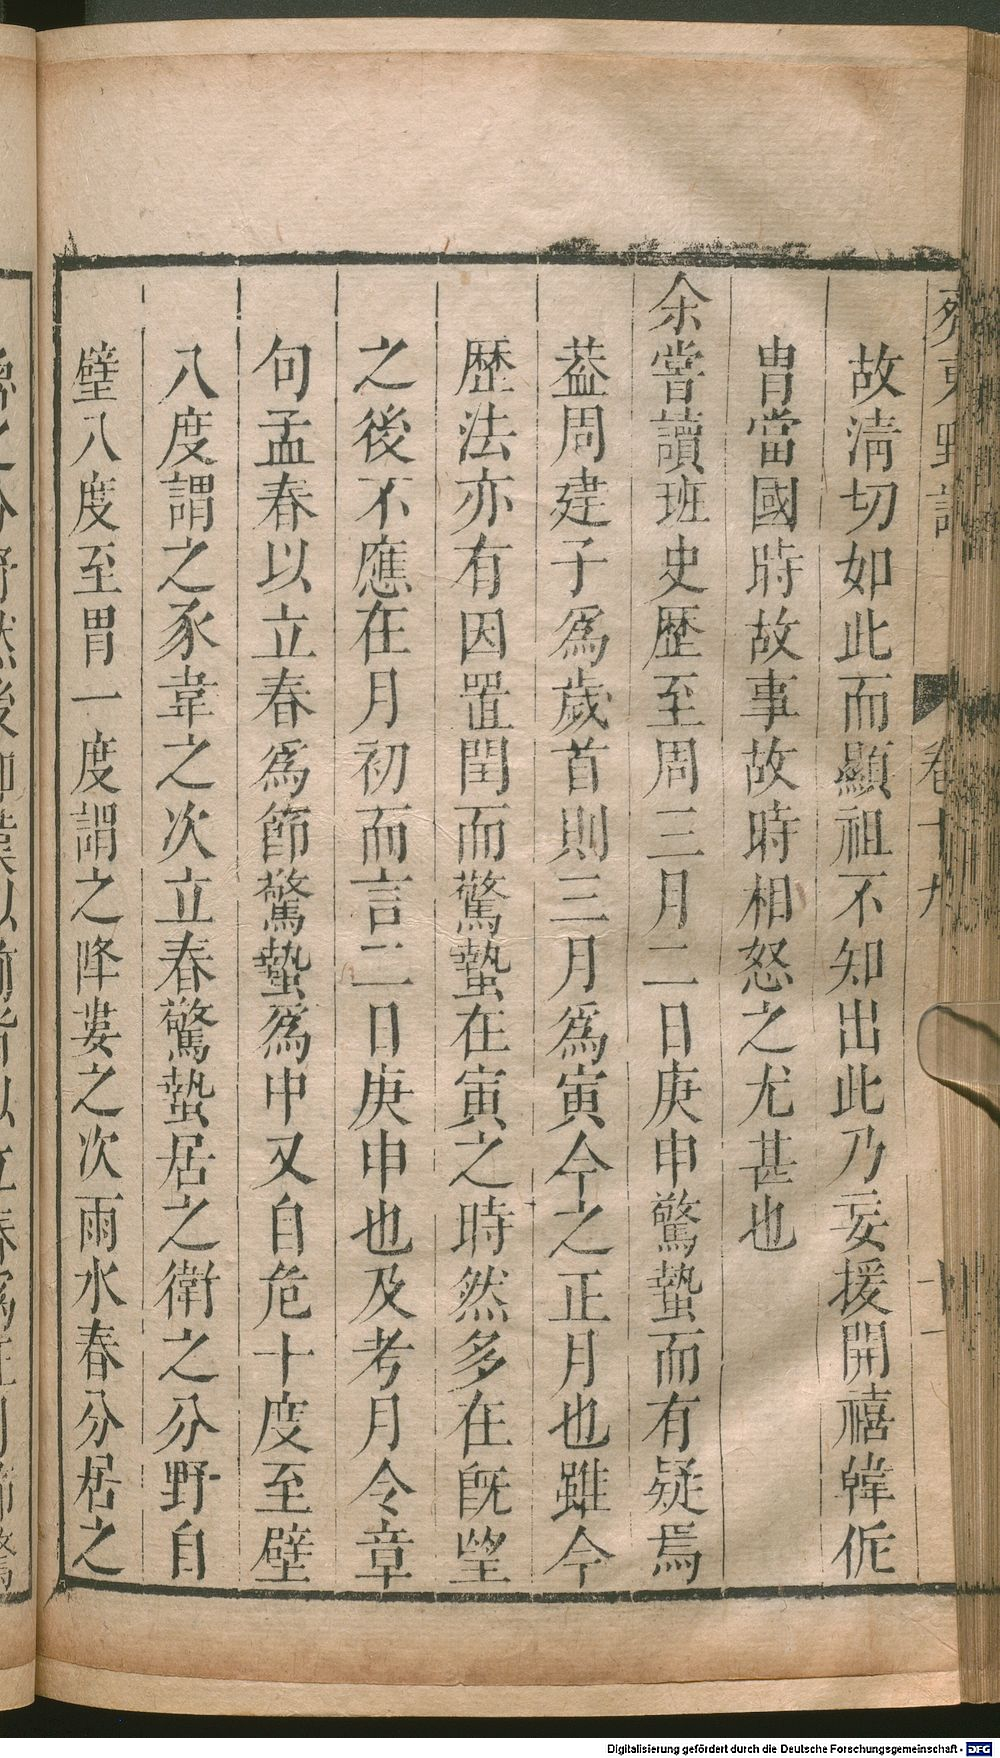 齊東野語 卷十九
故清切如此而顯祖不知出此乃妄援開禧韓侂
胄當國時故事故時相怒之尤甚也
余嘗讀班史歷至周三月二日庚申驚蟄而有疑焉
葢周建子爲歲首則三月爲寅今之正月也雖今
歷法亦有因置閏而驚蟄在寅之時然多在旣望
之後不應在月初而言二日庚申也及考月令章
句孟春以立春爲節驚蟄爲中又自危十度至壁
八度謂之豕韋之次立春驚蟄居之衛之分野自
壁八度至胃一度謂之降婁之次雨水春分居之
Digitalisierung gefördert durch die Deutsche Forschungsgemeinschaft - DFG